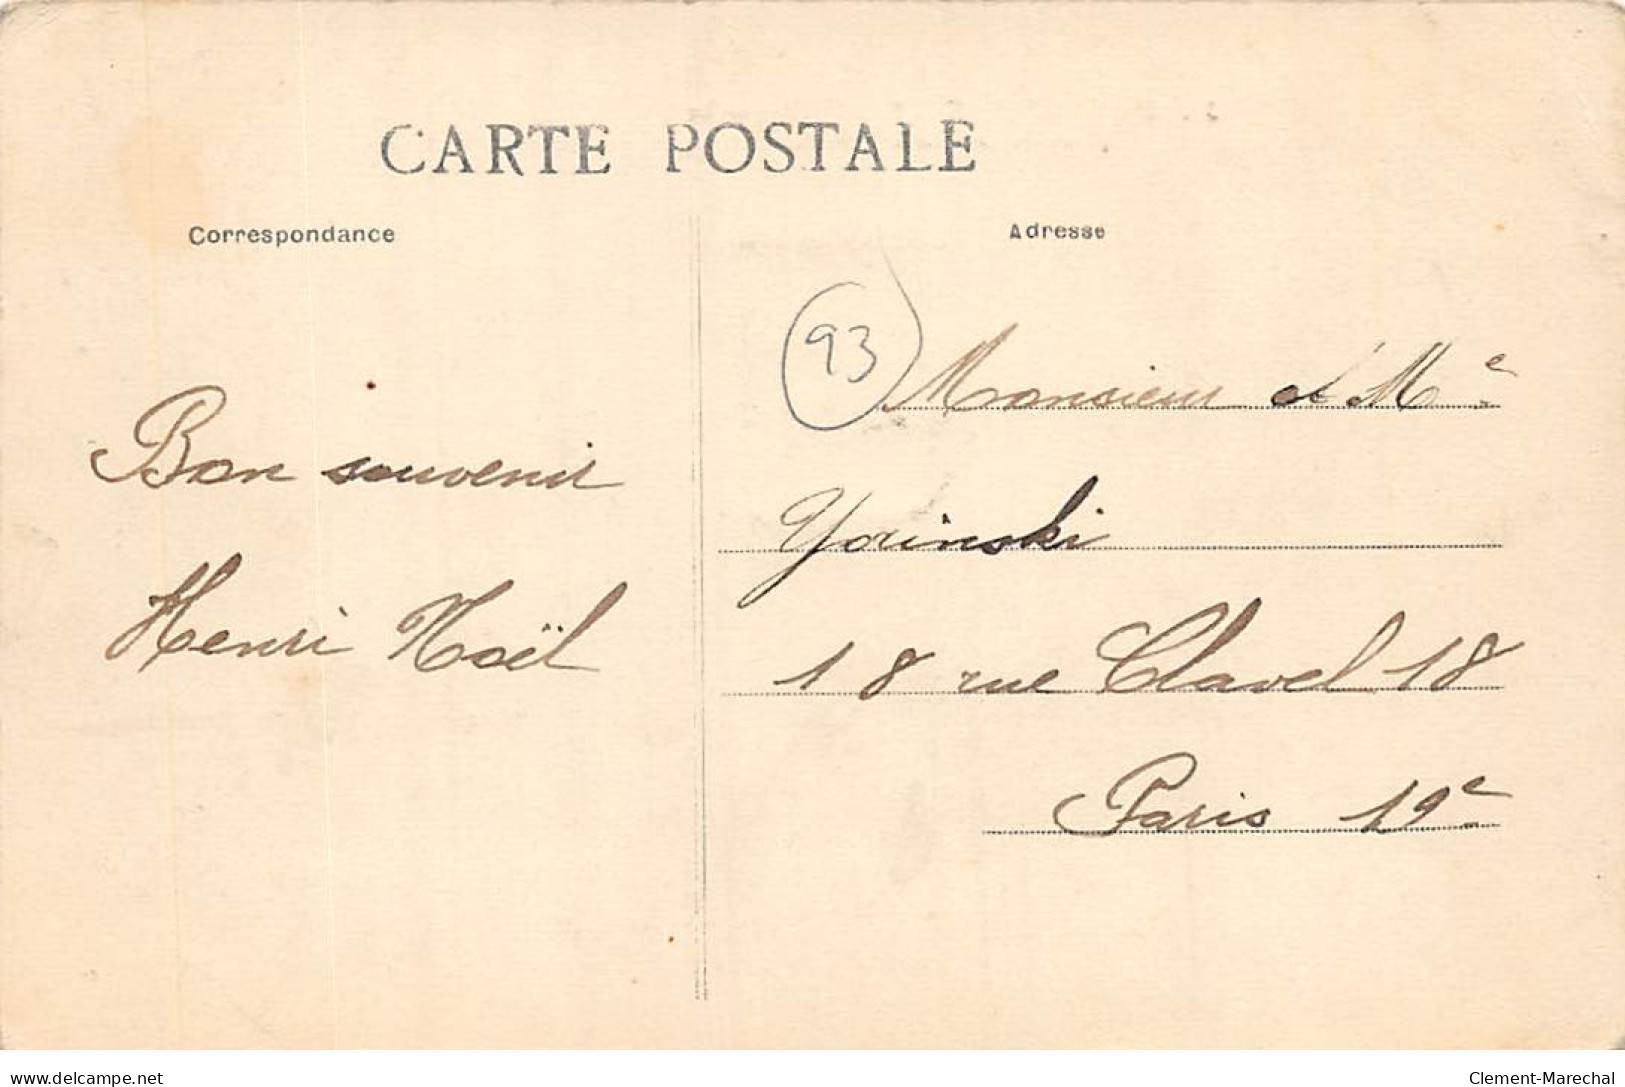 CARTE POSTALE
Correspondance
Adresse
Bon souvenir
Henri Noël
93
Monsieur et M e
Yorinski
18 rue Clavel 18
Paris 19e
www.delcampe.net
Clement-Marechal